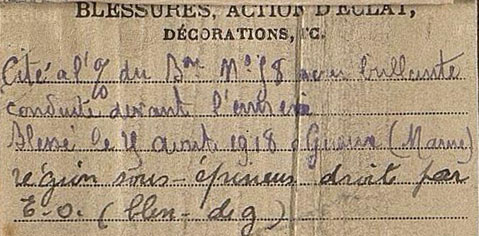 BLESSURES, ACTION D'ÉCLAT,
DÉCORATIONS, TC.
Cité à l'O/o du Bon No 58 pour brillante
conduite devant l'ennemi
Blessé le août 1918 (Marne)
région sous-épineuse droite par
E.O. (blen-deg)